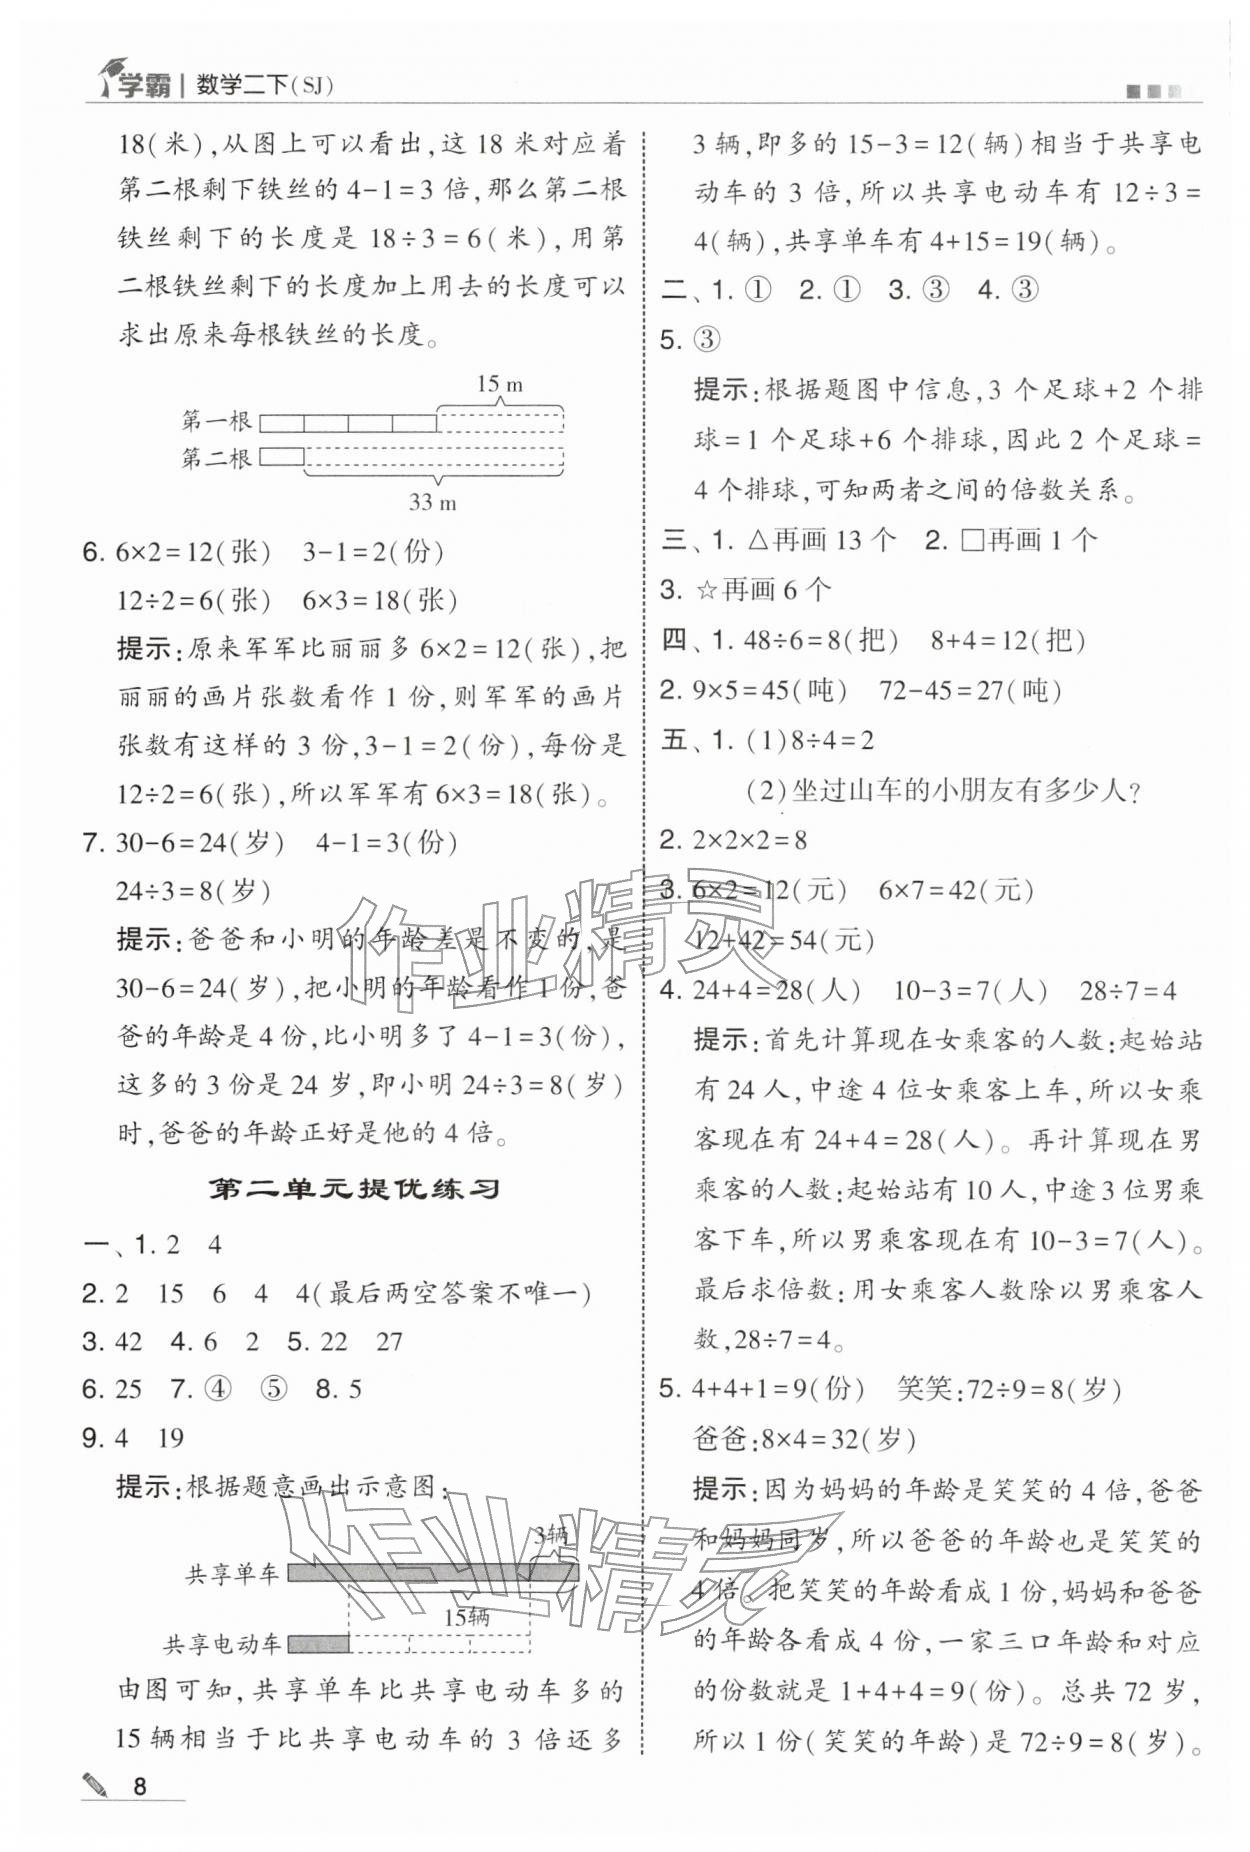 学霸 | 数学二下(SJ)
18(米),从图上可以看出,这 18 米对应着
第二根剩下铁丝的 4-1=3 倍,那么第二根
铁丝剩下的长度是 18÷3=6(米),用第
二根铁丝剩下的长度加上用去的长度可以
求出原来每根铁丝的长度。
15 m
第一根
第二根
33 m
6. 6×2=12(张) 3-1=2(份)
12÷2=6(张) 6×3=18(张)
提示:原来军军比丽丽多 6×2=12(张),把
丽丽的画片张数看作 1 份,则军军的画片
张数有这样的 3 份,3-1=2(份),每份是
12÷2=6(张),所以军军有 6×3=18(张)。
7. 30-6=24(岁) 4-1=3(份)
24÷3=8(岁)
提示:爸爸和小明的年龄差是不变的,是
30-6=24(岁),把小明的年龄看作 1 份,爸
爸的年龄是 4 份,比小明多了 4-1=3(份),
这多的 3 份是 24 岁,即小明 24÷3=8(岁)
时,爸爸的年龄正好是他的 4 倍。
第二单元提优练习
一、1. 2 4
2. 2 15 6 4 4(最后两空答案不唯一)
3. 42 4. 6 2 5. 22 27
6. 25 7. ④ ⑤ 8. 5
9. 4 19
提示:根据题意画出示意图:
3辆
共享单车
15辆
共享电动车
由图可知,共享单车比共享电动车多的
15 辆相当于比共享电动车的 3 倍还多
3 辆,即多的 15-3=12(辆)相当于共享电
动车的 3 倍,所以共享电动车有 12÷3=
4(辆),共享单车有 4+15=19(辆)。
二、1. ① 2. ① 3. ③ 4. ③
5. ③
提示:根据题图中信息,3 个足球+2 个排
球=1 个足球+6 个排球,因此 2 个足球=
4 个排球,可知两者之间的倍数关系。
三、1. △再画 13 个 2. □再画 1 个
3. ☆再画 6 个
四、1. 48÷6=8(把) 8+4=12(把)
2. 9×5=45(吨) 72-45=27(吨)
五、1. (1)8÷4=2
(2)坐过山车的小朋友有多少人?
2. 2×2×2=8
3. 6×2=12(元) 6×7=42(元)
12+42=54(元)
4. 24+4=28(人) 10-3=7(人) 28÷7=4
提示:首先计算现在女乘客的人数:起始站
有 24 人,中途 4 位女乘客上车,所以女乘
客现在有 24+4=28(人)。再计算现在男
乘客的人数:起始站有 10 人,中途 3 位男乘
客下车,所以男乘客现在有 10-3=7(人)。
最后求倍数:用女乘客人数除以男乘客人
数,28÷7=4。
5. 4+4+1=9(份) 笑笑:72÷9=8(岁)
爸爸:8×4=32(岁)
提示:因为妈妈的年龄是笑笑的 4 倍,爸爸
和妈妈同岁,所以爸爸的年龄也是笑笑的
4 �。把笑笑的年龄看成 1 份,妈妈和爸爸
的年龄各看成 4 份,一家三口年龄和对应
的份数就是 1+4+4=9(份)。总共 72 岁,
所以 1 份(笑笑的年龄)是 72÷9=8(岁)。
8
作业精灵
作业精灵